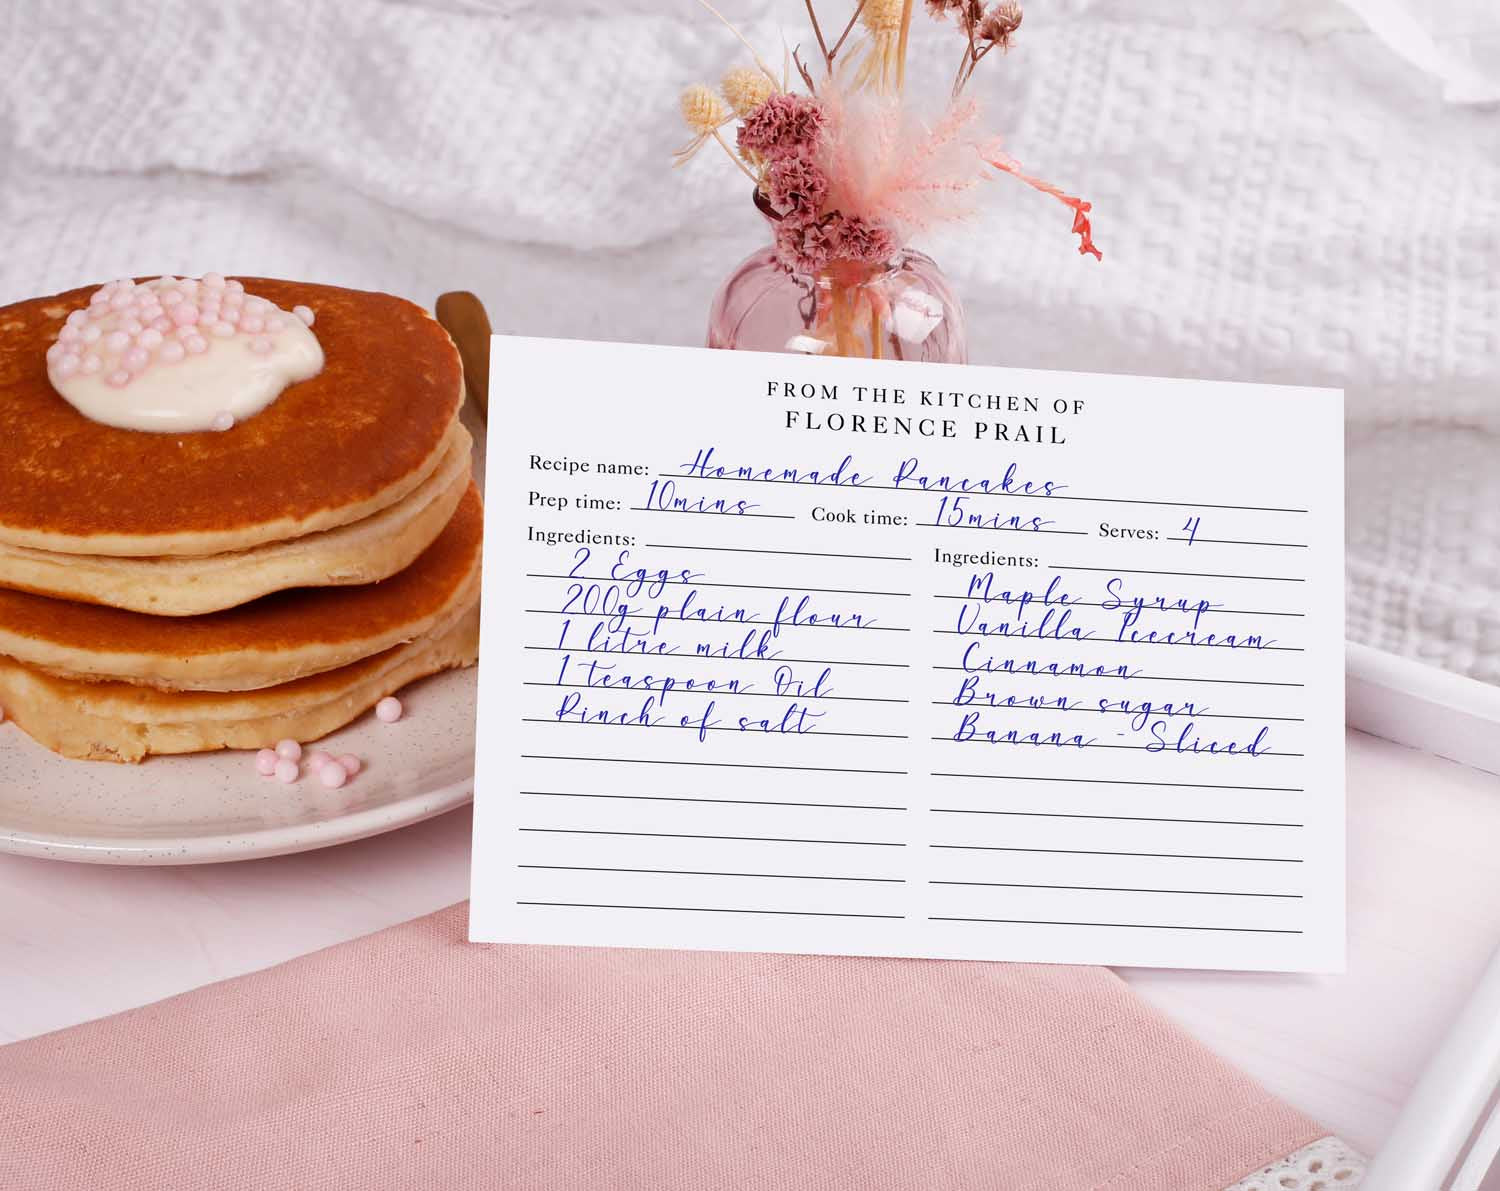 FROM THE KITCHEN OF
FLORENCE PRAIL
Recipe name: Homemade Pancakes
Prep time: 10mins Cook time: 15mins Serves: 4
Ingredients:
2 Eggs
200g plain flour
1 litre milk
1 teaspoon Oil
Pinch of salt
Ingredients:
Maple Syrup
Vanilla Icecream
Cinnamon
Brown sugar
Banana - Sliced